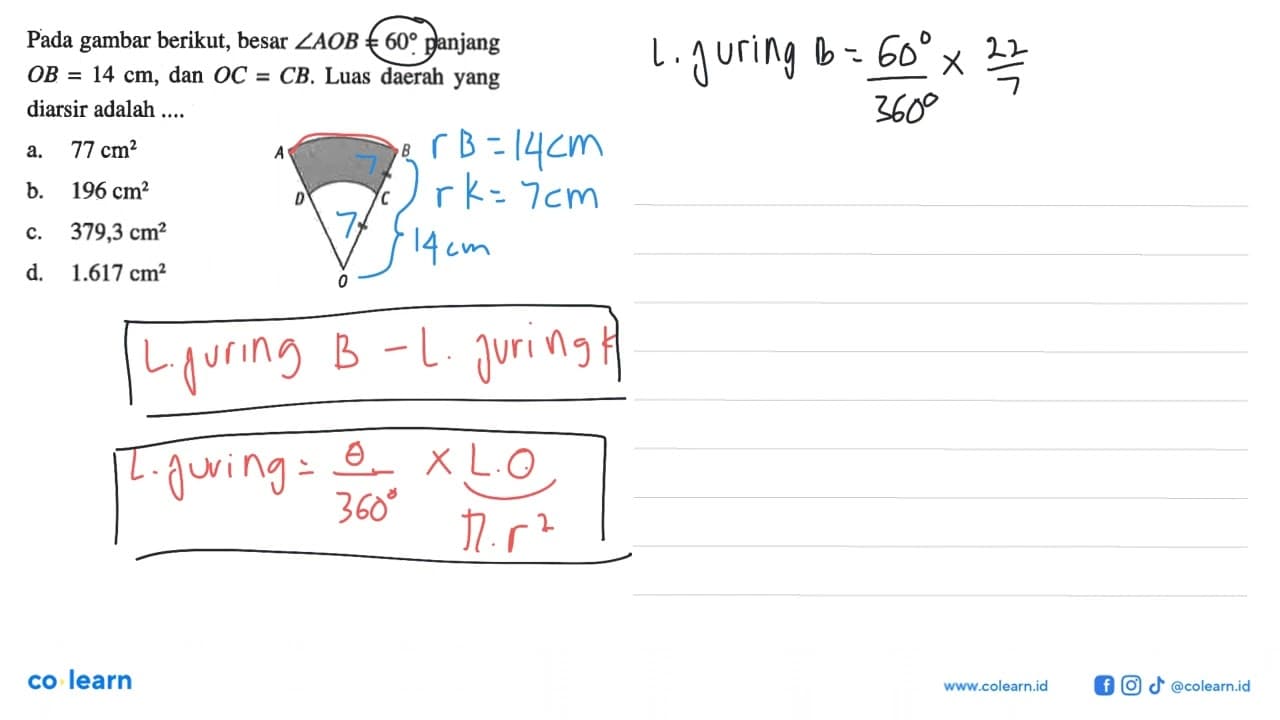 Pada gambar berikut, besar ∠AOB = 60° panjang
OB = 14 cm, dan OC = CB. Luas daerah yang
diarsir adalah ....
a. 77 cm²
b. 196 cm²
c. 379,3 cm²
d. 1.617 cm²
A
B
D
C
O
7
7
r B = 14 cm
r k = 7 cm
14 cm
L. juring B - L. juring k
L. juring = θ/360° × L.O
π.r²
L. juring B = 60°/360° × 22/7
co learn
www.colearn.id
@colearn.id